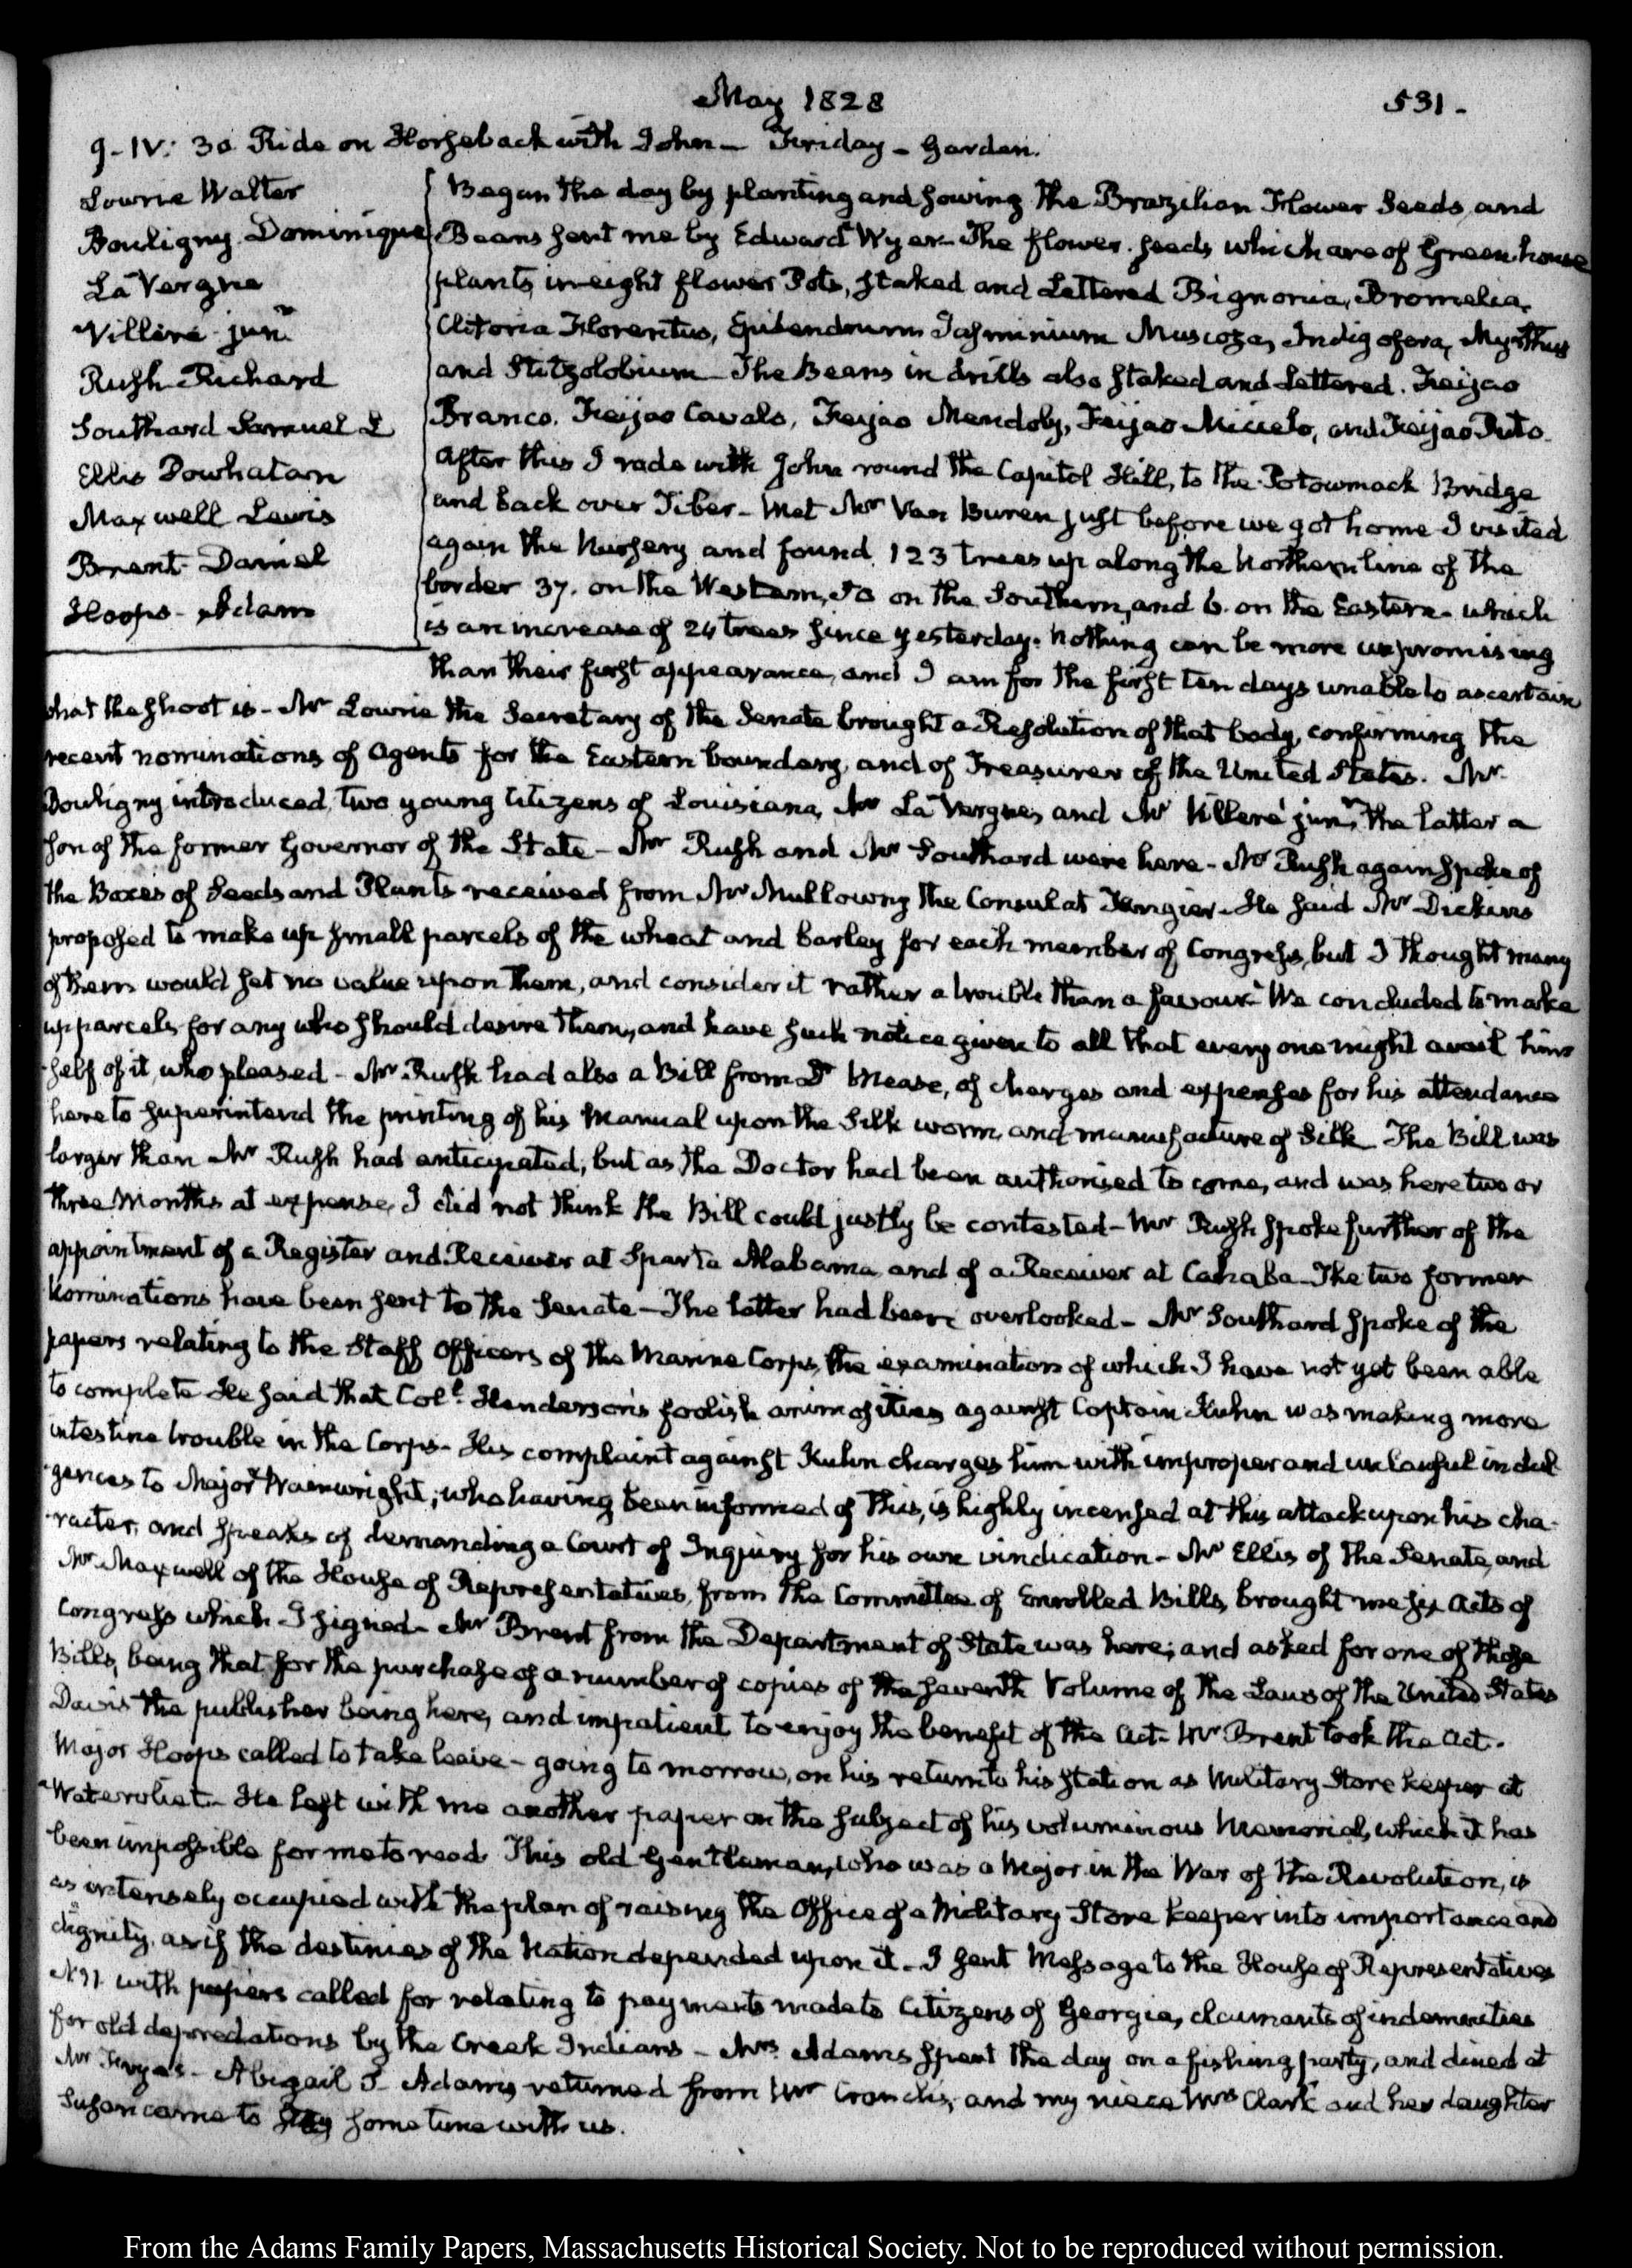 May 1828
531-
9-IV: 30 Ride on Horseback with John - Friday - Garden.
Lowrie Walter
Bouligny Dominique
La Vergne
Villere jun.r
Rush Richard
Southard Samuel L
Ellis Powhatan
Maxwell Lewis
Brent Daniel
Hoops - Adam
Began the day by planting and sowing the Brazilian Flower Seeds, and
Beans sent me by Edward Wyer - The flower seeds which are of Greenhouse
plants, in eight flower Pots, staked and Lettered Bignonia, Bromelia,
Clitoria Florentus, Epidendrum Jasminium Muscosa, Indigofera, Myrthus
and Stitzolobium - The Beans in drills also staked and Lettered. Feijao
Branco. Feijao Cavalo, Feijao Mendoby, Feijao Miceto, and Feijao Puto.
After this I rode with John round the Capitol Hill, to the Potowmack Bridge
and back over Tiber - Met Mr Van Buren just before we got home I visited
again the Nursery and found 123 trees up along the Northern line of the
border 37. on the Western, on the Southern, and 6. on the Eastern - which
is an increase of 24 trees since yesterday. Nothing can be more unpromising
than their first appearance, and I am for the first ten days unable to ascertain
what the shoot is - Mr Lowrie the Secretary of the Senate brought a Resolution of that body, confirming the
recent nominations of Agents for the Eastern boundary, and of Treasurer of the United States. Mr
Bouligny introduced two young Citizens of Louisiana, Mr La Vergne, and Mr Villeré jun.r, the latter a
son of the former Governor of the State - Mr Rush and Mr Southard were here - Mr Rush again spoke of
the Boxes of Seeds and Plants received from Mr Mullowny the Consul at Tangier - He said Mr Dickins
proposed to make up small parcels of the wheat and barley for each member of Congress, but I thought many
of them would set no value upon them, and consider it rather a trouble than a favour - We concluded to make
up parcels for any who should desire them, and have such notice given to all that every one might avail him
self of it, who pleased - Mr Rush had also a Bill from Dr Mease, of charges and expenses for his attendance
here to superintend the printing of his Manual upon the Silk worm, and manufacture of Silk The Bill was
larger than Mr Rush had anticipated; but as the Doctor had been authorised to come, and was here two or
three Months at expense, I did not think the Bill could justly be contested - Mr Rush spoke further of the
appointment of a Register and Receiver at Sparta Alabama and of a Receiver at Cahaba - The two former
Nominations have been sent to the Senate - The latter had been overlooked - Mr Southard spoke of the
papers relating to the Staff Officers of the Marine Corps, the examination of which I have not yet been able
to complete He said that Col.l Henderson's foolish animosities against Captain Kuhn was making more
intestine trouble in the Corps - His complaint against Kuhn charges him with improper and unlawful indul
gences to Major Wainwright; who having been informed of this, is highly incensed at this attack upon his cha-
racter, and speaks of demanding a Court of Inquiry for his own vindication - Mr Ellis of the Senate, and
Mr Maxwell of the House of Representatives, from the Committee of Enrolled Bills, brought me six Acts of
Congress which I signed - Mr Brent from the Department of State was here; and asked for one of those
Bills, being that for the purchase of a number of copies of the seventh Volume of the Laws of the United States
Davis the publisher being here, and impatient to enjoy the benefit of the Act - Mr Brent took the Act.
Major Hoops called to take leave - going to morrow, on his return to his station as Military Store keeper at
Watervliet - He left with me another paper on the subject of his voluminous Memorial, which it has
been impossible for me to read This old Gentleman, who was a Major in the War of the Revolution, is
as intensely occupied with the plan of raising the Office of a Military Store keeper into importance and
dignity, as if the destinies of the Nation depended upon it - I sent Message to the House of Representatives
with papers called for relating to payments made to Citizens of Georgia, claimants of indemnities
for old depredations by the Creek Indians - Mrs Adams spent the day on a fishing party, and dined at
Mr - Abigail S. Adams returned from Mr Cranch's, and my niece Mrs Clark and her daughter
Susan came to stay some time with us.
From the Adams Family Papers, Massachusetts Historical Society. Not to be reproduced without permission.